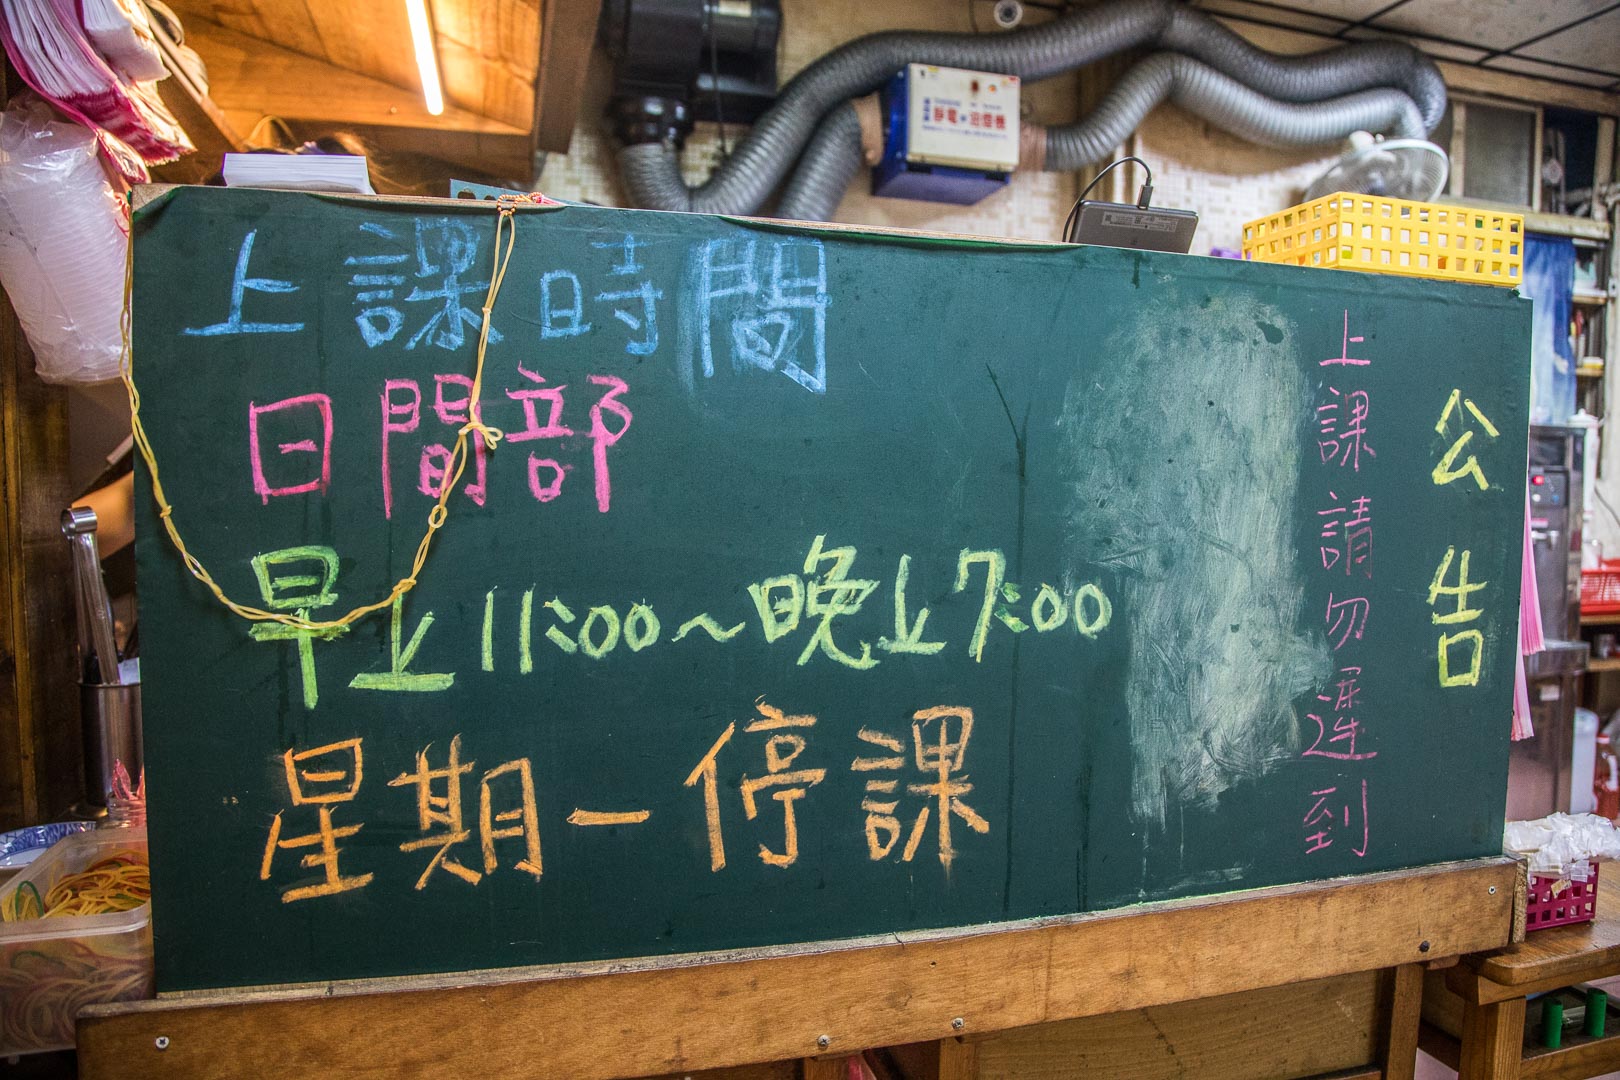 上課時間
日間部
早上11:00～晚上7:00
星期一停課
公告
上課請勿遲到
靜電 油煙機